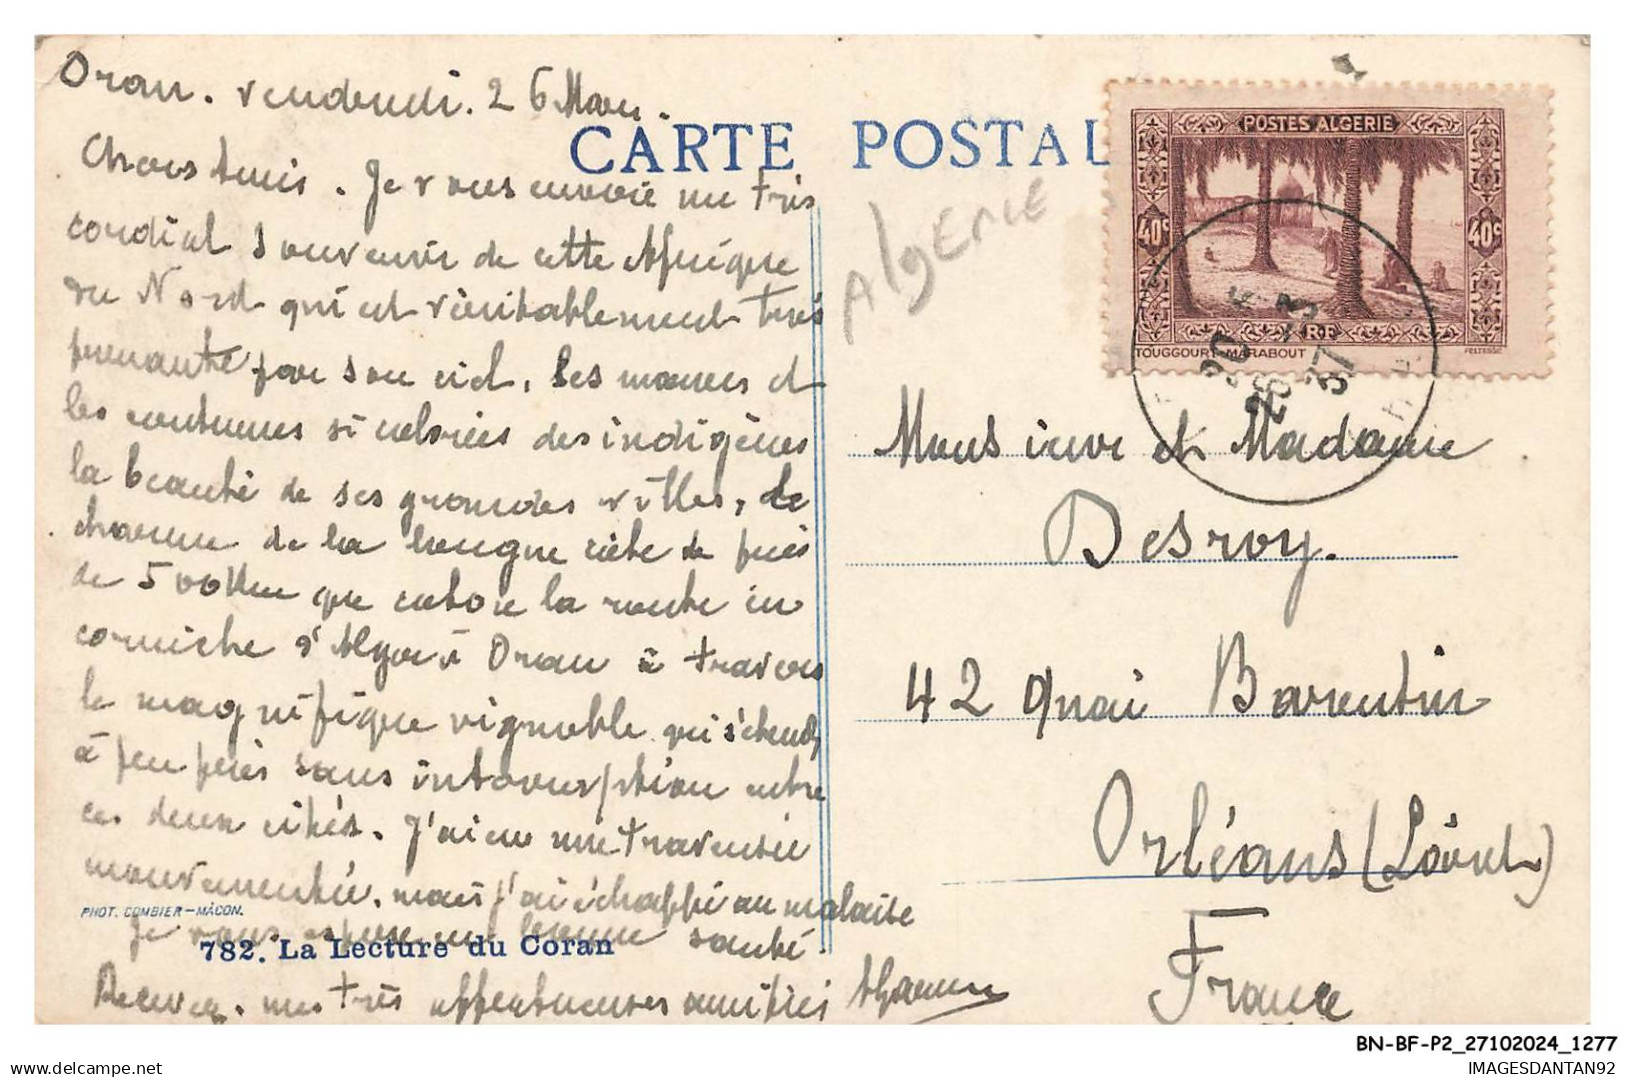 Oran. vendredi. 26 Mars.
CARTE POSTALE
Chers Amis. Je vous envoie un très
cordial souvenir de cette Afrique
du Nord qui est véritablement très
prenante par son ciel, les mœurs et
les coutumes si colorées des indigènes
la beauté de ses grandes villes, le
charme de la longue côte de près
de 500 Km que côtoie la route en
corniche d'Alger à Oran à travers
le magnifique vignoble qui s'étend
à peu près sans interruption entre
ces deux cités. J'ai eu une traversée
mouvementée, mais j'ai échappé au malaise
Je vous espère en bonne santé.
Recevez mes très affectueuses amitiés
PHOT. COMBIER-MÂCON.
782. La Lecture du Coran
Algerie
POSTES ALGERIE
40c 40c
RF
TOUGGOURT-MARABOUT
FELTESSE
20
26 - 3
37
Monsieur et Madame
Desroy.
42 quai Barentin
Orléans (Loiret)
France
BN-BF-P2_27102024_1277
IMAGESDANTAN92